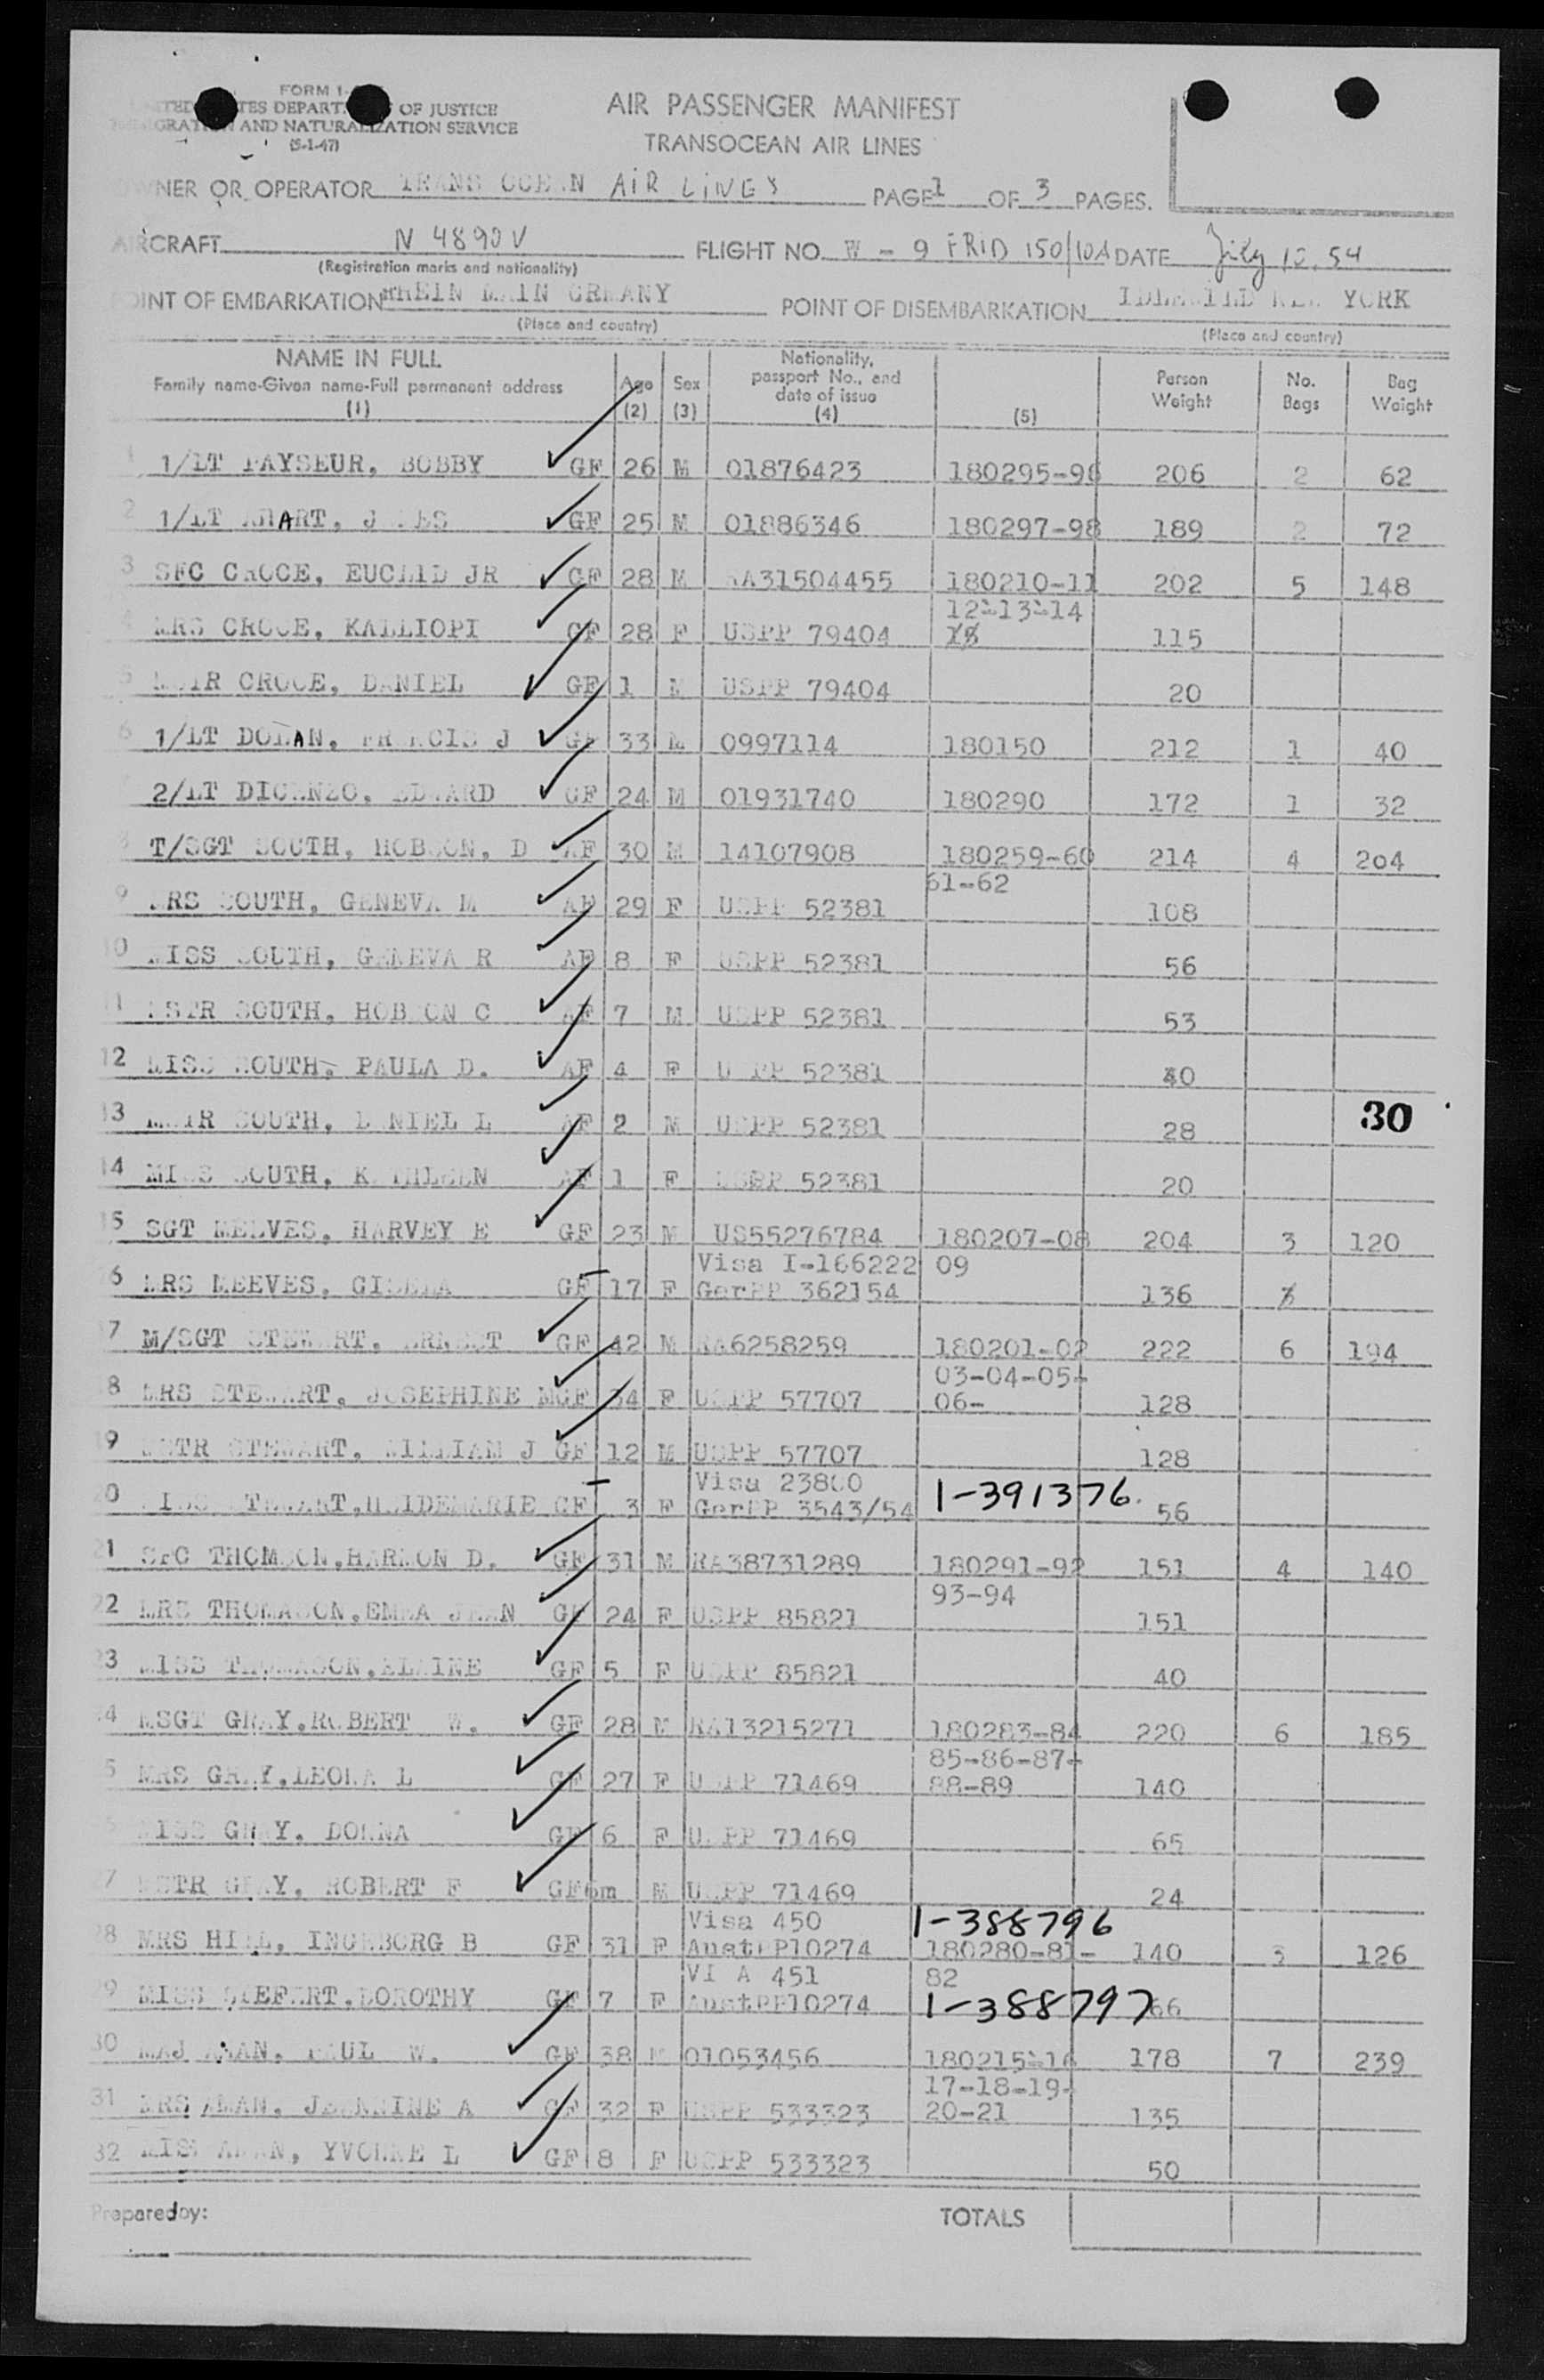 FORM I-
UNITED STATES DEPARTMENT OF JUSTICE
IMMIGRATION AND NATURALIZATION SERVICE
(5-1-47)
AIR PASSENGER MANIFEST
TRANSOCEAN AIR LINES
OWNER OR OPERATOR TRANS OCEAN AIR LINES PAGE 1 OF 3 PAGES.
AIRCRAFT N 4890V FLIGHT NO. W - 9 FRID 150/10A DATE July 12, 54
(Registration marks and nationality)
POINT OF EMBARKATION RHEIN MAIN GRMANY POINT OF DISEMBARKATION IDLEWILD NEW YORK
(Place and country) (Place and country)
NAME IN FULL Family name-Given name-Full permanent address (1) Age (2) Sex (3) Nationality, passport No., and date of issue (4) (5) Person Weight No. Bags Bag Weight
1 1/LT PAYSEUR, BOBBY GF 26 M 01876423 180295-96 206 2 62
2 1/LT GF 25 M 01886346 180297-98 189 2 72
3 SFC CROCE, EUCLID JR GF 28 M RA31504455 180210-11 202 5 148
12-13-14
4 MRS CROCE, KALLIOPI GF 28 F USPP 79404 115
5 MSTR CROCE, DANIEL GF 1 M USPP 79404 20
6 1/LT DOLAN, FRANCIS J GF 33 M 0997114 180150 212 1 40
2/LT DICENZO, EDWARD GF 24 M 01931740 180290 172 1 32
8 T/SGT SOUTH, HOBSON, D AF 30 M 14107908 180259-60 214 4 204
61-62
9 MRS SOUTH, GENEVA M AF 29 F USPP 52381 108
10 MISS SOUTH, GENEVA R AF 8 F USPP 52381 56
11 MSTR SOUTH, HOBSON C AF 7 M USPP 52381 53
12 MISS SOUTH, PAULA D. AF 4 F USPP 52381 40
13 MSTR SOUTH, DANIEL L AF 2 M USPP 52381 28 30
14 MISS SOUTH, KATHLEEN AF 1 F USPP 52381 20
15 SGT MEEVES, HARVEY E GF 23 M US55276784 180207-08 204 3 120
Visa I-166222 09
16 MRS MEEVES, GISELA GF 17 F GerPP 362154 136
17 M/SGT STEWART, ERNEST GF 42 M RA6258259 180201-02 222 6 194
03-04-05-
18 MRS STEWART, JOSEPHINE M GF 34 F USPP 57707 06- 128
19 MSTR STEWART, WILLIAM J GF 12 M USPP 57707 128
Visa 23800
20 MISS STEWART, HEIDEMARIE GF 3 F GerPP 3543/54 1-391376. 56
21 SFC THOMSON, HARMON D. GF 31 M RA38731289 180291-92 151 4 140
93-94
22 MRS THOMASON, EMMA JEAN GF 24 F USPP 85821 151
23 MISS THOMASON, ELAINE GF 5 F USPP 85821 40
24 MSGT GRAY, ROBERT W. GF 28 M RA13215271 180283-84 220 6 185
85-86-87-
25 MRS GRAY, LEONA L GF 27 F USPP 71469 88-89 140
26 MISS GRAY, DONNA GF 6 F USPP 71469 65
27 MSTR GRAY, ROBERT F GF 6m M USPP 71469 24
Visa 450 1-388796
28 MRS HILL, INGEBORG B GF 31 F AustPP10274 180280-81- 140 3 126
VISA 451 82
29 MISS SIEFERT, DOROTHY GF 7 F AustPP10274 1-388797 66
30 MAJ AMAN, PAUL W. GF 38 M 01053456 180215-16 178 7 239
17-18-19-
31 MRS AMAN, JEANNINE A GF 32 F USPP 533323 20-21 135
32 MISS AMAN, YVONNE L GF 8 F USPP 533323 50
Prepared by: TOTALS